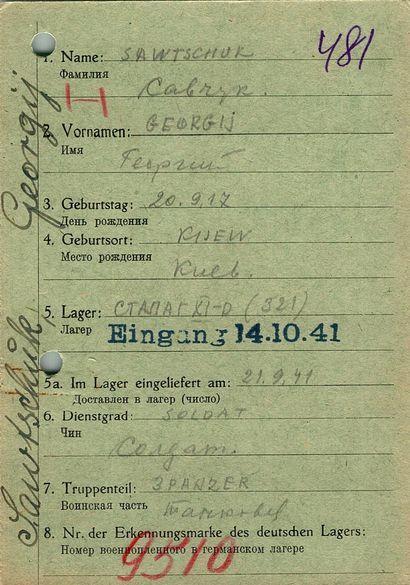 481
1. Name: SAWTSCHUK
Фамилия
Савчук
H
2. Vornamen: GEORGIJ
Имя
Георгий
3. Geburtstag: 20.9.17
День рождения
4. Geburtsort: KIJEW
Место рождения
Киев.
5. Lager: СТАЛАГ XI-D (321)
Лагер
Eingang 14.10.41
5a. Im Lager eingeliefert am: 21.9.41
Доставлен в лагер (число)
6. Dienstgrad: SOLDAT
Чин
Солдат.
7. Truppenteil: 3PANZER
Воинская часть
8. Nr. der Erkennungsmarke des deutschen Lagers:
Номер военнопленного в германском лагере
9510
Sawtschuk, Georgij